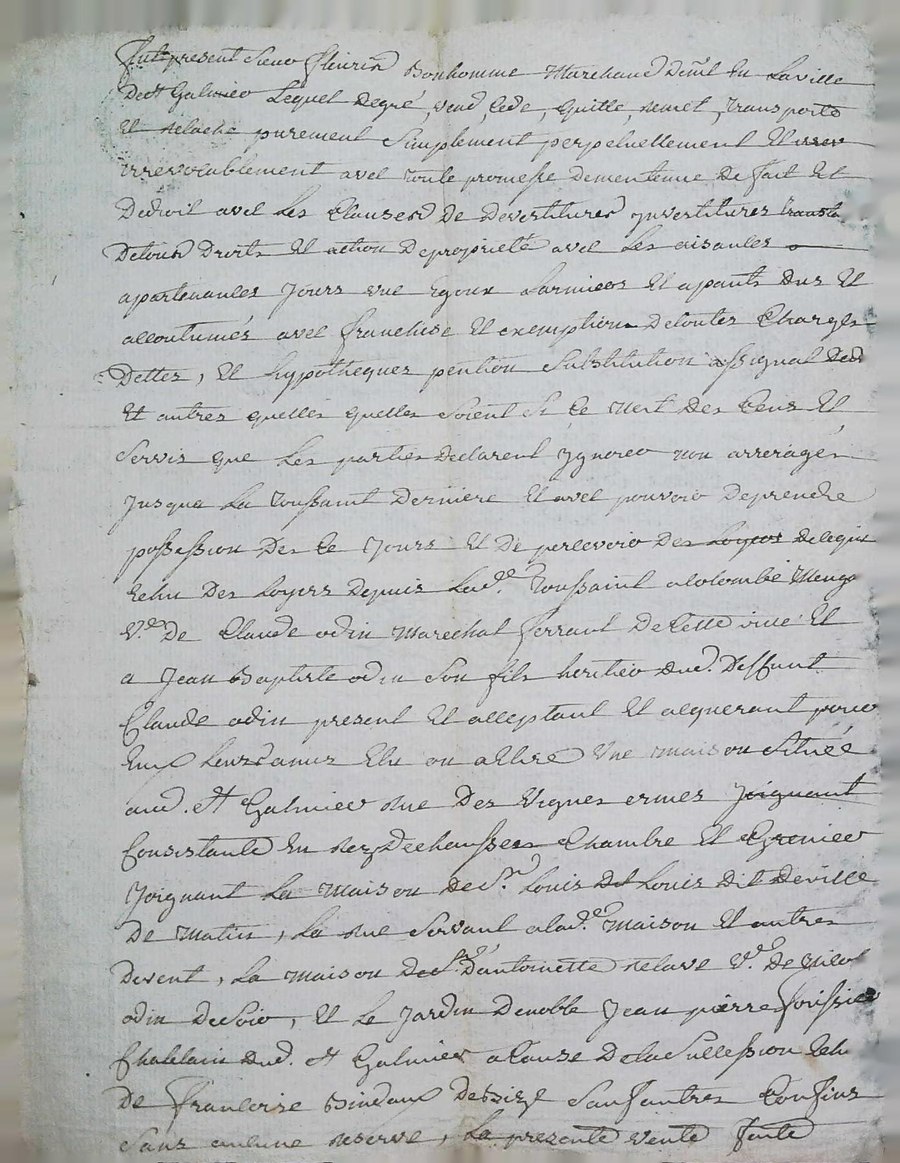 Fut present Sieur fleurin Bonhomme Marchand Demt En Laville
De St Galmier Lequel Degré, vend, Cede, Quitte, Remet, Transporte
Et Relache purement Simplement perpetuellement Et
irrevocablement avec toute promesse Demeintenue De fait Et
Dedroit avec Les Clauses De Devertitures Invertitures
Detous Droits Et action Depropriete avec Les aisances
apartenances Jours vue Egoux Larmiers Et apants Dus Et
accoutumés avec franchise Et exemption Detoutes Charges
Dettes, Et hypotheques pention Substitution assignal
Et autres quelles quelles soient Si Ce n'est Des Cens Et
Servis que Les parties Declarent Ignorer non arreragés
Jusqua La Toussaint Derniere Et avec pouvoir Deprendre
possession Des Ce Jours Et De percevoir Des Loyers
Des Loyers Depuis Lade. Toussaint a Colombe
Ve. De Claude odin Marechal ferrant De Cette ville Et
a Jean Baptiste odin Son fils heritier dud. Deffunt
Claude odin present Et acceptant Et aquerant pour
Eux Leurs amis Elu ou a Elire Une maison Scituée
aud. St Galmier Rue Des Vignes ermes Joignant
Consistante En Rez Dechaussee Chambre Et Grenier
Joignant La Maison De Sr. Louis Louis Dit Deville
De Matin, La Rue Servant a lade. Maison Et autres
Devent, La maison De antoinette Relave Ve. De
odin De Soir, Et Le Jardin Denoble Jean pierre
Chatelain Dud. St Galmier a Cause Dela Succession
De francoise Sauf autres Confins
Sans aucune Reserve, La presente Vente faite